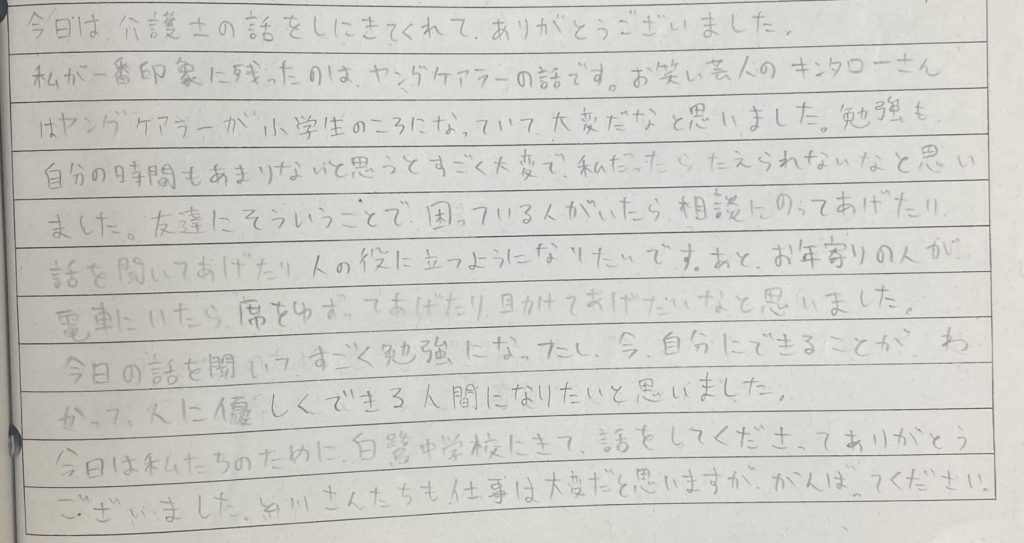 今日は、介護士の話をしにきてくれて、ありがとうございました。
私が一番印象に残ったのは、ヤングケアラーの話です。お笑い芸人のキンタローさん
はヤングケアラーが小学生のころになっていて、大変だなと思いました。勉強も、
自分の時間もあまりないと思うとすごく大変で、私だったら、たえられないなと思い
ました。友達にそういうことで、困っている人がいたら、相談にのってあげたり、
話を聞いてあげたり、人の役に立つようになりたいです。あと、お年寄りの人が、
電車にいたら、席をゆずってあげたり、助けてあげたいなと思いました。
今日の話を聞いて、すごく勉強になったし、今、自分にできることが わ
かって、人に優しくできる人間になりたいと思いました。
今日は私たちのために、白鷺中学校にきて、話をしてくださってありがとう
ございました。 さんたちも仕事は大変だと思いますが、がんばってください。